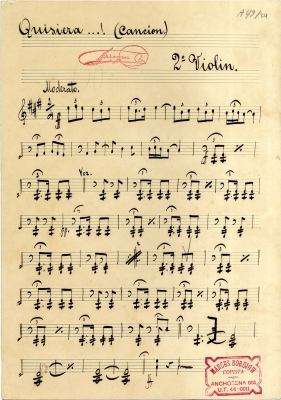 Quisiera...! (Cancion)
2º Violin.
Moderato.
Voz.
MARCOS BORCHON
COPISTA
ANCHORENA 666
U.T. 44-0011